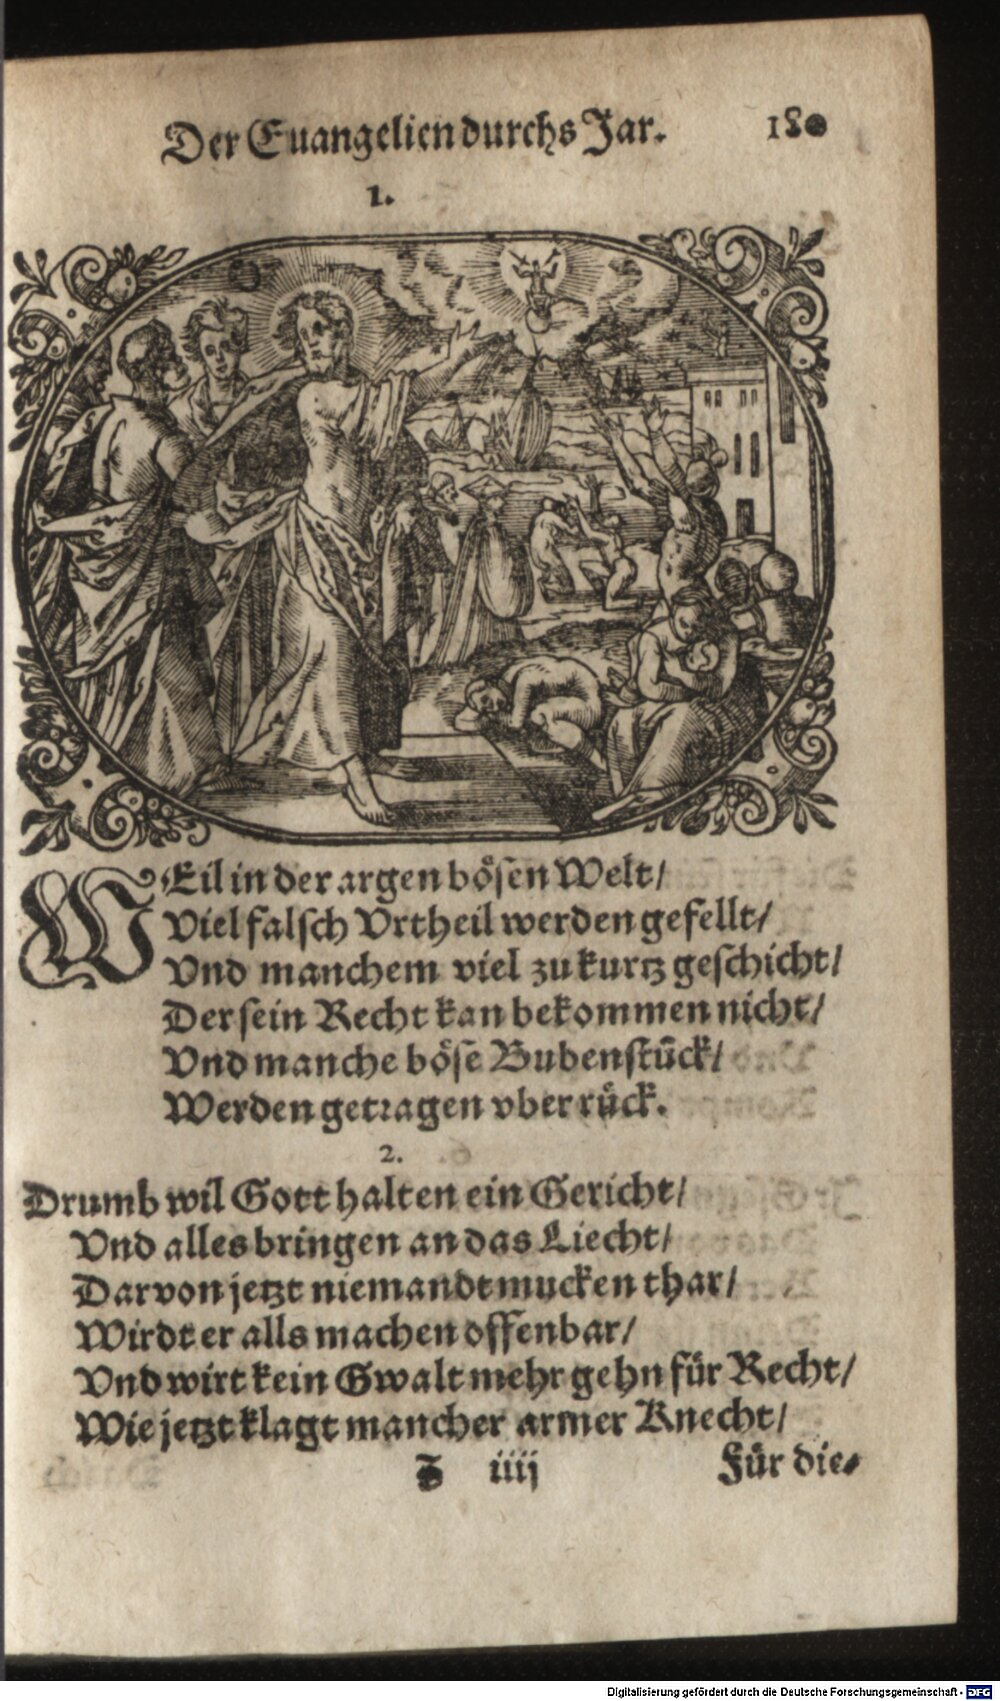 Der Euangelien durchs Jar. 180
1.
WEil in der argen bösen Welt/
Viel falsch Vrtheil werden gefellt/
Vnd manchem viel zu kurtz geschicht/
Der sein Recht kan bekommen nicht/
Vnd manche böse Bubenstück/
Werden getragen vber rück.
2.
Drumb wil Gott halten ein Gericht/
Vnd alles bringen an das Liecht/
Darvon jetzt niemandt mucken thar/
Wirdt er alls machen offenbar/
Vnd wirt kein Gwalt mehr gehn für Recht/
Wie jetzt klagt mancher armer Knecht/
iiij Für die⸗
Digitalisierung gefördert durch die Deutsche Forschungsgemeinschaft - DFG